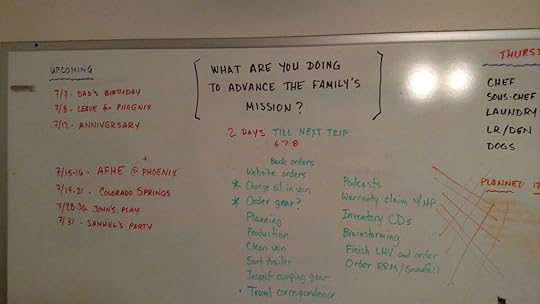 UPCOMING
7/7 - DAD'S BIRTHDAY
7/8 - LEAVE FOR PHOENIX
7/12 - ANNIVERSARY
7/15-16 - AFHE @ PHOENIX
7/19-21 - COLORADO SPRINGS
7/28-30 - JOHN'S PLAY
7/31 - SAMUEL'S PARTY
WHAT ARE YOU DOING
TO ADVANCE THE FAMILY'S
MISSION?
2 DAYS TILL NEXT TRIP
6 7 8
Back orders
Website orders
* Change oil in van
* Order gear?
Planning
Production
Clean van
Sort trailer
Inspect camping gear
• Travel correspondence
Podcasts
Warranty claim w/HP
Inventory CDs
Brainstorming
Finish LHV and order
Order RRM/Snowfall
THURST
CHEF
SOUS-CHEF
LAUNDRY
LR/DEN
DOGS
PLANNED IT